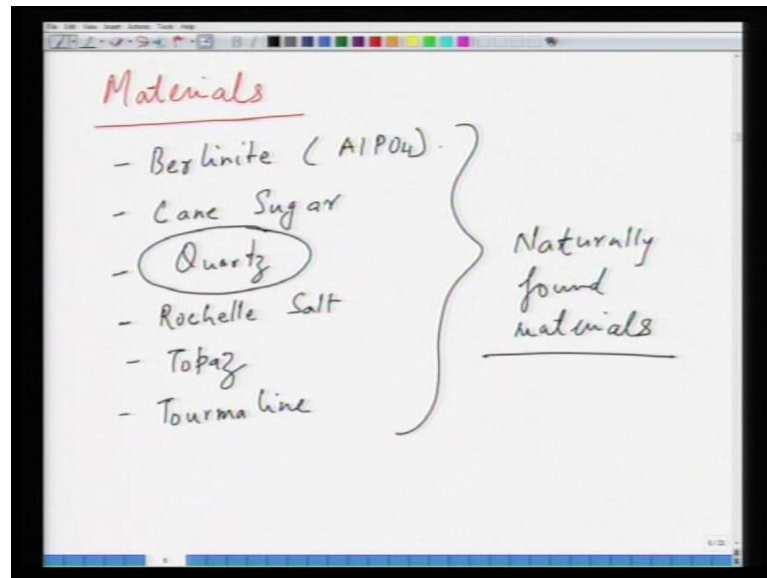 File Edit View Insert Actions Tools Help
Materials
- Berlinite ( AlPO4) .
- Cane Sugar
- Quartz
- Rochelle Salt
- Topaz
- Tourmaline
Naturally
found
materials